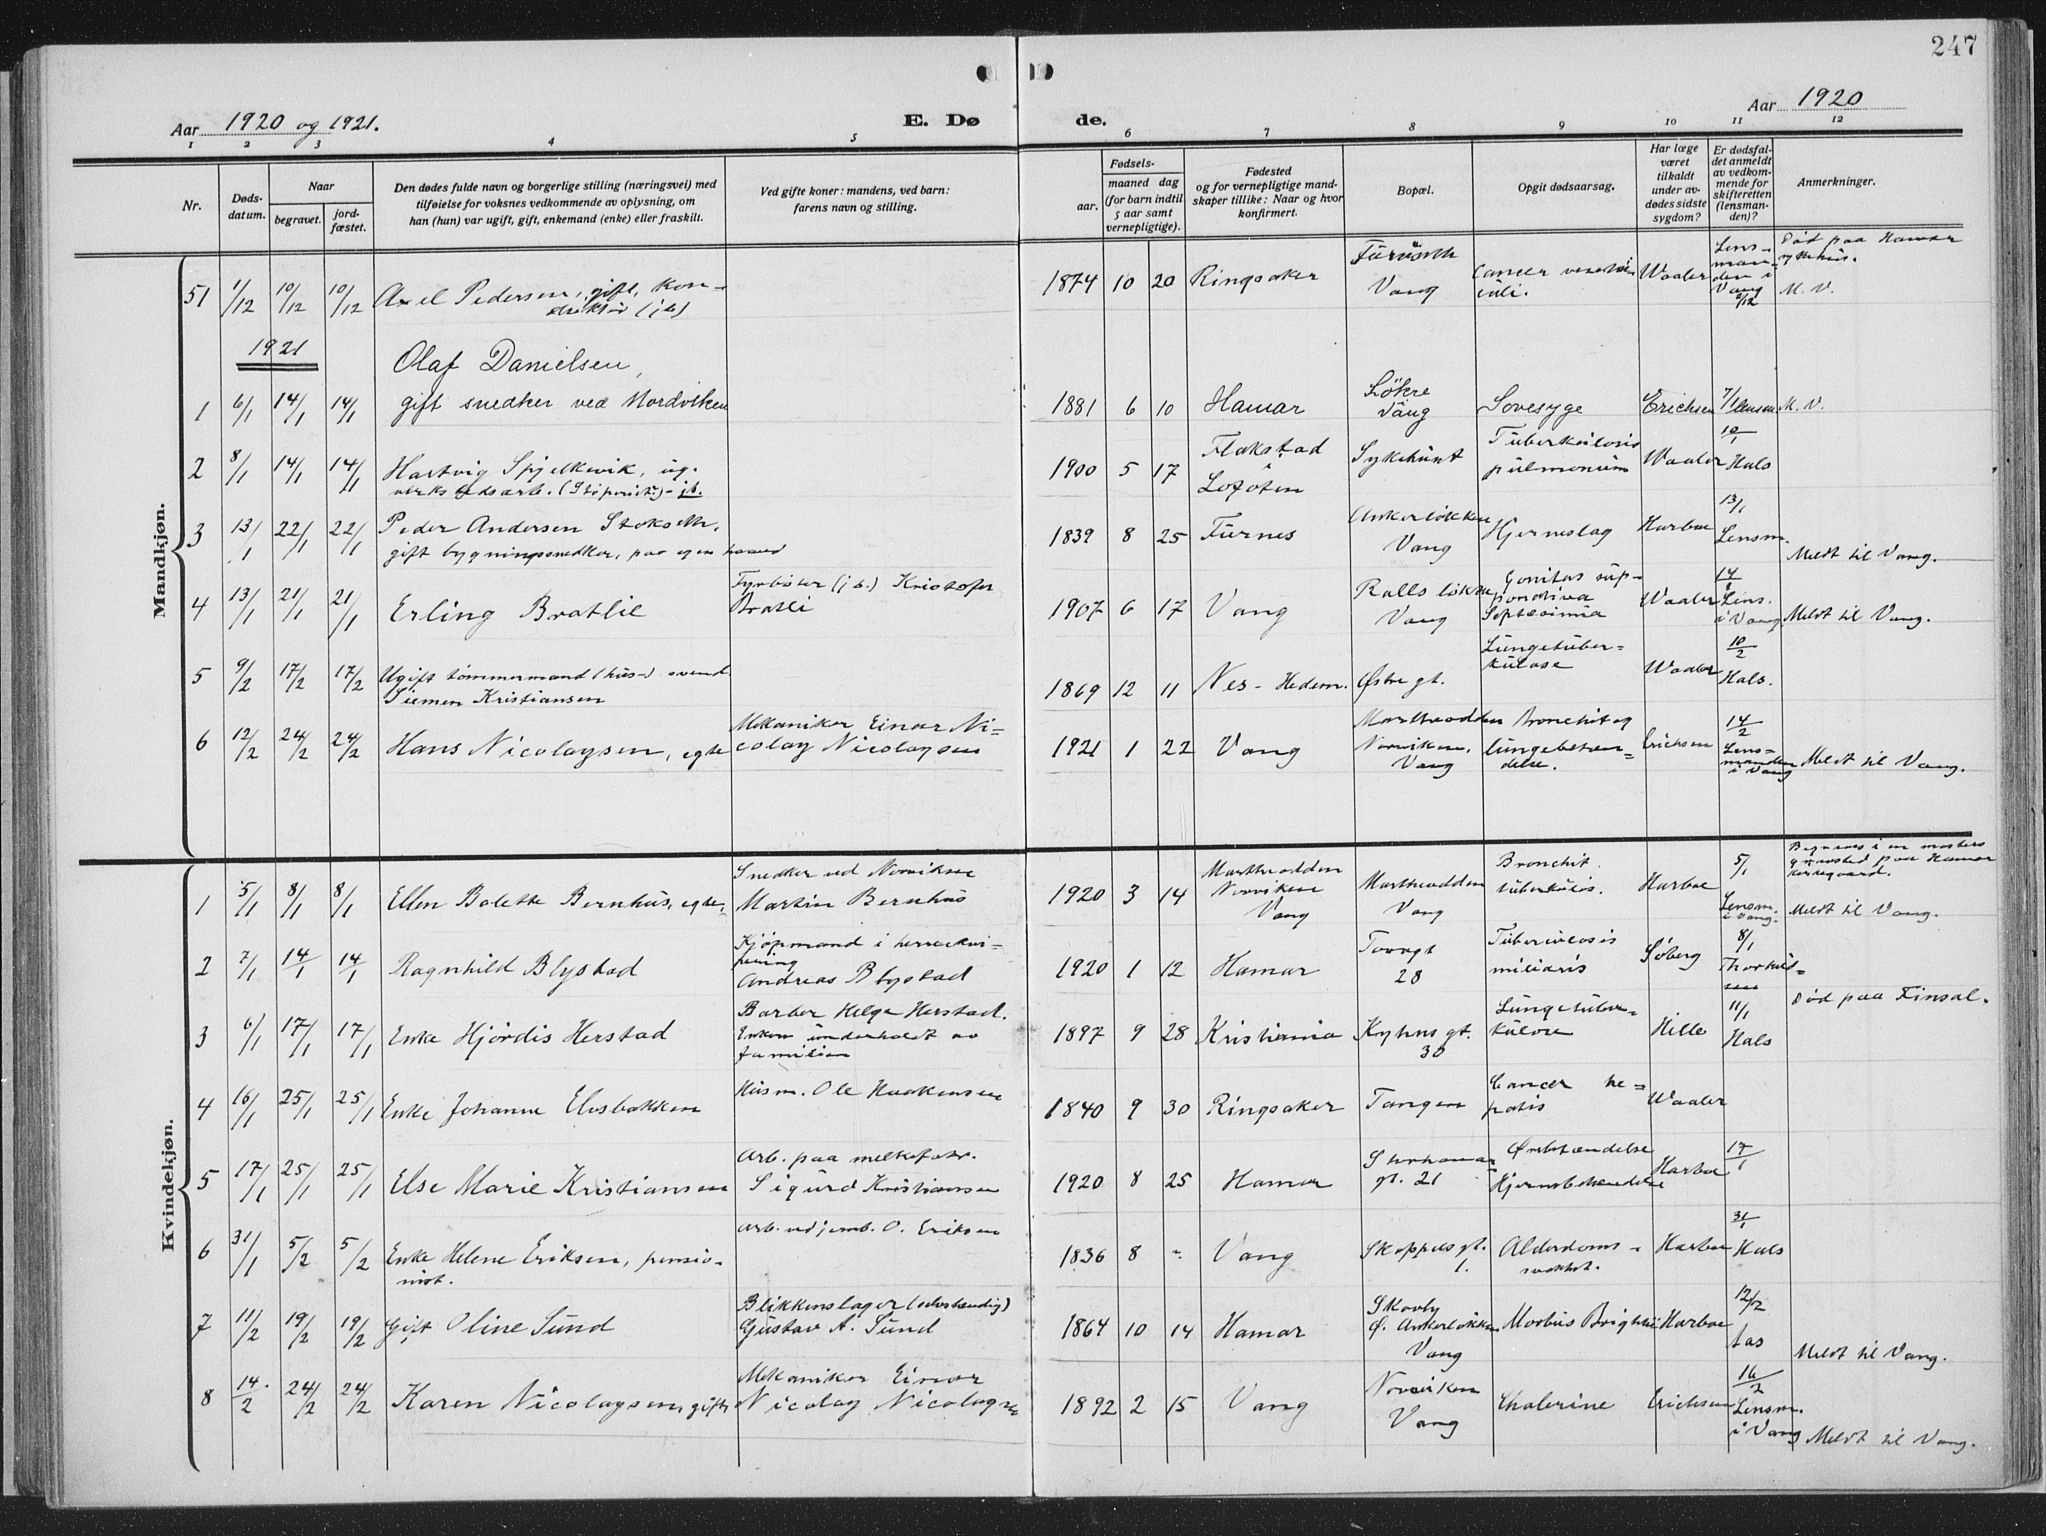 247
Aar 1920 og 1921.
E. Dø
de.
Aar 1920
1 2 3 4 5 6 7 8 9 10 11 12
Nr.
Døds-
datum.
Naar
begravet.
jord-
fæstet.
Den dødes fulde navn og borgerlige stilling (næringsvei) med
tilføielse for voksnes vedkommende av oplysning, om
han (hun) var ugift, gift, enkemand (enke) eller fraskilt.
Ved gifte koner: mandens, ved barn:
farens navn og stilling.
Fødsels-
aar.
maaned dag
(for barn indtil
5 aar samt
vernepligtige).
Fødested
og for vernepligtige mand-
skaper tillike: Naar og hvor
konfirmert.
Bopæl.
Opgit dødsaarsag.
Har læge
været
tilkaldt
under av-
dødes sidste
sygdom?
Er dødsfal-
det anmeldt
av vedkom-
mende for
skifteretten
(lensman-
den)?
Anmerkninger.
Mandkjøn.
51 1/12 10/12 10/12 Axel Pedersen, gift, kon-
duktør (jb)
1874 10 20 Ringsaker
Vang
Cancer
Waaler
Lens-
man-
den i
Vang
Død paa Hamar
sykehus.
M. V.
1921
Olaf Danielsen,
1 6/1 14/1 14/1 gift snedker ved Nordviken
1881 6 10 Hamar
Løkre
Vang
Sovesyge
Erichsen
7/1 Lensm
M. V.
2 8/1 14/1 14/1 Hartvig Spjelkevik, ug.
verkstedsarb.
1900 5 17 Flakstad
Lofoten
Tuberkulosis
pulmonum
Waaler
10/1
Hals
3 13/1 22/1 22/1 Peder Andersen Stokseth,
gift bygningssnedker, paa egen haand
1839 8 25 Furnes
Ankerløkken
Vang
Hjerneslag
Harboe
13/1
Lensm.
Meldt til Vang.
4 13/1 21/1 21/1 Erling Bratlie
Fyrbøter (jb.) Kristofer
Bratli
1907 6 17 Vang
Ralls løkke
Vang
Waaler
14/1
Lens.
i Vang.
Meldt til Vang.
5 9/2 17/2 17/2 Ugift tømmermand (hus-) svend
Simen Kristiansen
1869 12 11 Nes - Hedem. Østre gt.
Lungetuber-
kulose
Waaler
10/2
Hals.
6 12/2 24/2 24/2 Hans Nicolaysen, egte
Mekaniker Einar Ni-
colay Nicolaysen
1921 1 22 Vang
Marthaodden
Norviken,
Vang
Bronchit og
lungebeten-
delse.
Erichsen
14/2
Lens-
manden
i Vang
Meldt til Vang.
Kvindekjøn.
1 5/1 8/1 8/1 Ellen Bolette Bernhus, egte,
Snedker ved Norviken
Martin Bernhus
1920 3 14
Marthaodden
Norviken
Vang
Marthaodden
Vang
Bronchit.
tuberkulos.
Harboe
5/1
Lensm.
i Vang.
Begraves i en mosters
gravsted paa Hamar
kirkegaard.
Meldt til Vang.
2 7/1 14/1 14/1 Ragnhild Blystad
Kjøpmand i herreekvi-
pering
Andreas Blystad
1920 1 12 Hamar
Torvgt
28
Tuberculosis
miliaris
Søberg
8/1
3 6/1 17/1 17/1 Enke Hjördis Herstad
Barber Helge Herstad.
Enken underholdt av
familien
1897 9 28 Kristiania
Kyhns gt.
30
Lungetuber-
kulose
Hille
11/1
Hals
Død paa Finsal.
4 16/1 25/1 25/1 Enke Johanne Elvsbakken
Husm. Ole Haakensen
1840 9 30 Ringsaker Tangen
Cancer he-
patis
Waaler
5 17/1 25/1 25/1 Else Marie Kristiansen
Arb. paa melkefabr.
Sigurd Kristiansen
1920 8 25 Hamar
Storhamar
gt. 21
Ørebetændelse
Hjernebetændelse
Harboe
17/1
6 31/1 5/2 5/2 Enke Helene Eriksen, pensio-
nist.
Arb. ved jernb. O. Eriksen
1836 8 - Vang
Skappels gt.
1.
Alderdoms-
svakhet.
Harboe
31/1
Hals
7 11/2 19/2 19/2 Gift Oline Sund
Blikkenslager (selvstændig)
Gustav A. Sund
1864 10 14 Hamar
Skovly
Ø. Ankerløkken
Vang
Morbus Brightii
Harboe
12/2
Meldt til Vang.
8 14/2 24/2 24/2 Karen Nicolaysen, gift
Mekaniker Einar
Nicolay Nicolaysen
1892 2 15 Vang
Norviken
Vang
Erichsen
16/2
Lensm.
i Vang
Meldt til Vang.